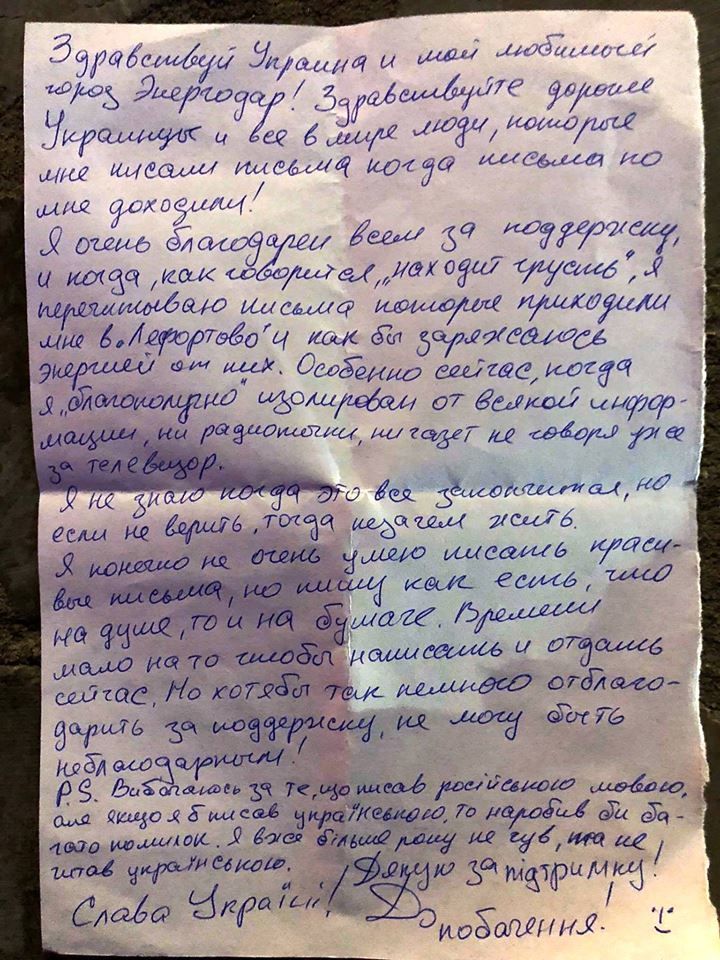 Здравствуй Украина и мой любимый
город Энергодар! Здравствуйте дорогие
Украинцы и все в мире люди, которые
мне писали письма когда письма ко
мне доходили!
Я очень благодарен всем за поддержку,
и когда, как говорится, „находит грусть", я
перечитываю письма которые приходили
мне в „Лефортово" и как бы заряжаюсь
энергией от них. Особенно сейчас, когда
я „благополучно" изолирован от всякой инфор-
мации, ни радиоточки, ни газет не говоря уже
за телевизор.
Я не знаю когда это все закончится, но
если не верить, тогда незачем жить.
Я конечно не очень умею писать краси-
вые письма, но пишу как есть, что
на душе, то и на бумаге. Времени
мало на то чтобы написать и отдать
сейчас. Но хотябы так немного отблаго-
дарить за поддержку, не могу быть
неблагодарным!
P.S. Вибачаюсь за те, що писав російською мовою,
але якщо я б писав українською, то наробив би ба-
гато помилок. Я вже більше року не чув, та не
читав українською. Дякую за підтримку!
Слава Україні! До
побачення!